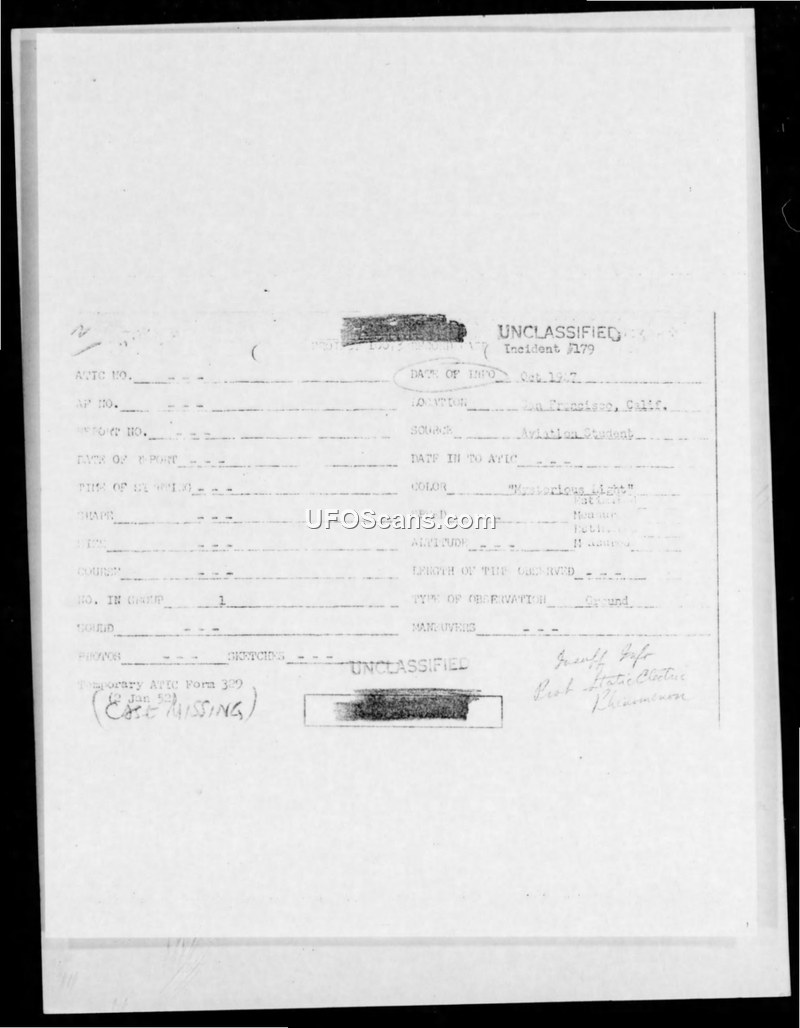 UNCLASSIFIED
Incident #179
ATIC NO. - - - DATE OF INFO Oct 1947
AF NO. - - - LOCATION San Francisco, Calif.
REPORT NO. - - - SOURCE Aviation Student
DATE OF REPORT - - - DATE IN TO ATIC - - -
TIME OF SIGHTING - - - COLOR "Mysterious Light"
SHAPE - - - SPEED
SIZE - - - ALTITUDE - - -
COURSE - - - LENGTH OF TIME OBSERVED - - -
NO. IN GROUP 1 TYPE OF OBSERVATION Ground
SOUND - - - MANEUVERS - - -
PHOTOS - - - SKETCHES - - -
UNCLASSIFIED
Temporary ATIC Form 329
(2 Jan 52)
(CASE MISSING)
Insuff Info
Prob Static Electric
Phenomenon
UFOScans.com